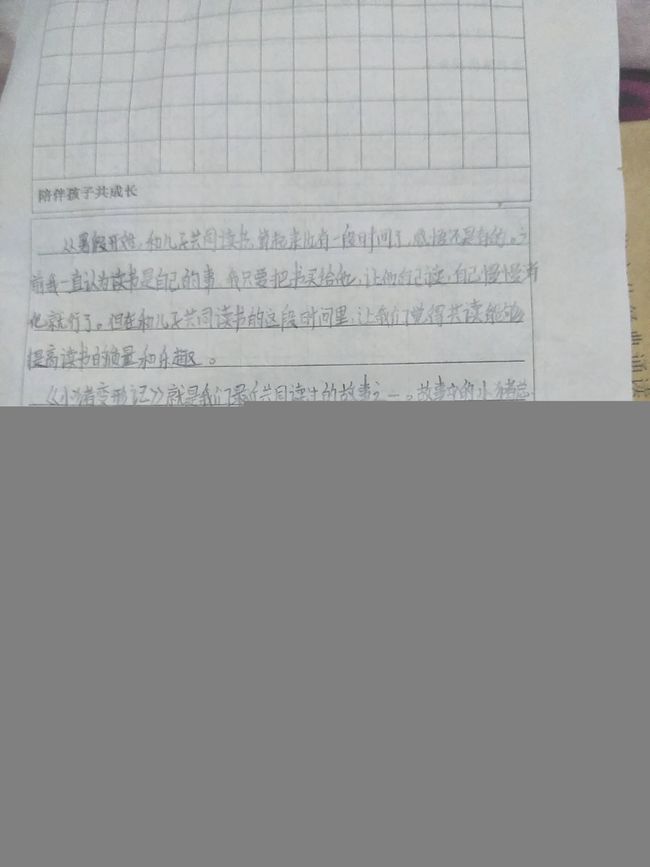 陪伴孩子共成长
从暑假开始，和儿子共同读书，算起来也有一段时间了，感悟还是有的。之
前我一直认为读书是自己的事，我只要把书买给他，让他自己读，自己慢慢看
也就行了。但在和儿子共同读书的这段时间里，让我们觉得共读能够
提高读书的质量和乐趣。
《小猪变形记》就是我们最近共同读过的故事之一。故事中的小猪总